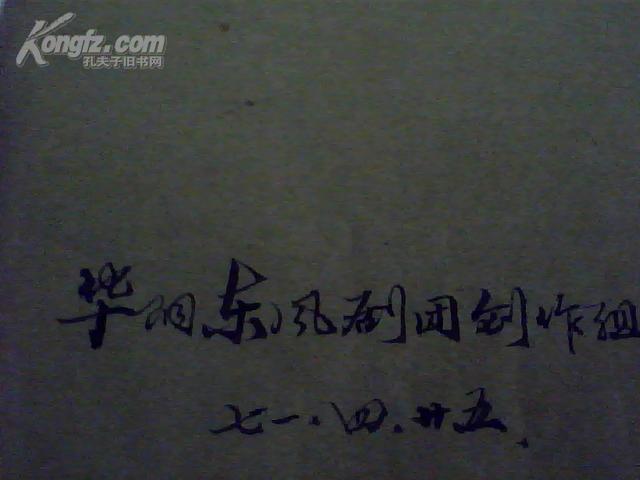 Kongfz.com
孔夫子旧书网
华阴东风剧团创作组
七一.四.廿五.